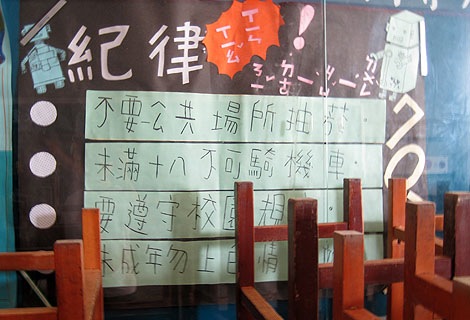 紀律!
不要公共場所抽菸。
未滿十八不可騎機車。
要遵守校園規
未成年勿上色情